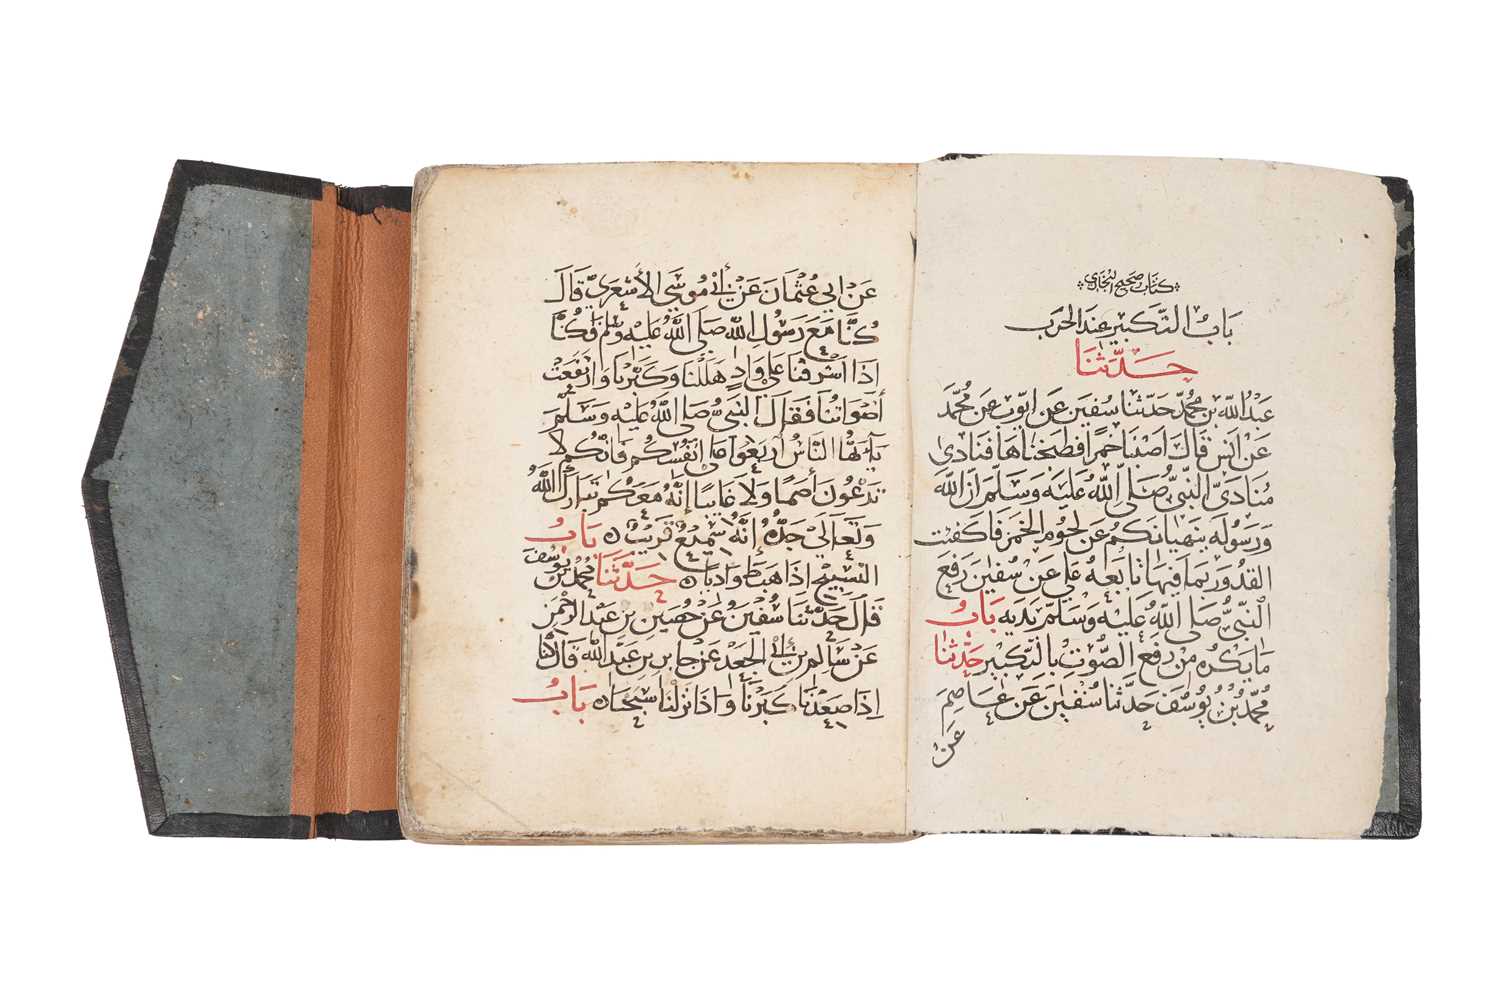 كتاب صحيح البخاري
باب التكبير عند الحرب
حدثنا
عبد الله بن محمد حدثنا سفين عن ايوب عن محمد
عن انس قال اصبنا حمرا فطبخناها فنادى
منادى النبي صلى الله عليه وسلم ان الله
ورسوله ينهيانكم عن لحوم الحمر فاكفئت
القدور بما فيها تابعه علي عن سفين رفع
النبي صلى الله عليه وسلم يديه باب
ما يكره من رفع الصوت بالتكبير حدثنا
محمد بن يوسف حدثنا سفين عن عاصم
عن
عن ابي عثمان عن ابي موسى الاشعري قال
كنا مع رسول الله صلى الله عليه وسلم فكنا
اذا اشرفنا على واد هللنا وكبرنا وارتفعت
أصواتنا فقال النبي صلى الله عليه وسلم
يا يها الناس اربعوا على انفسكم فانكم لا
تدعون أصما ولا غايبا إنه معكم تبارك الله
وتعالى جده إنه سميع قريب باب
التسبيح اذا هبط واديا حدثنا محمد بن يوسف
قال حدثنا سفين عن حصين بن عبد الرحمن
عن سالم بن ابي الجعد عن جابر بن عبد الله قال كنا
إذا صعدنا كبرنا واذا نزلنا سبحنا باب